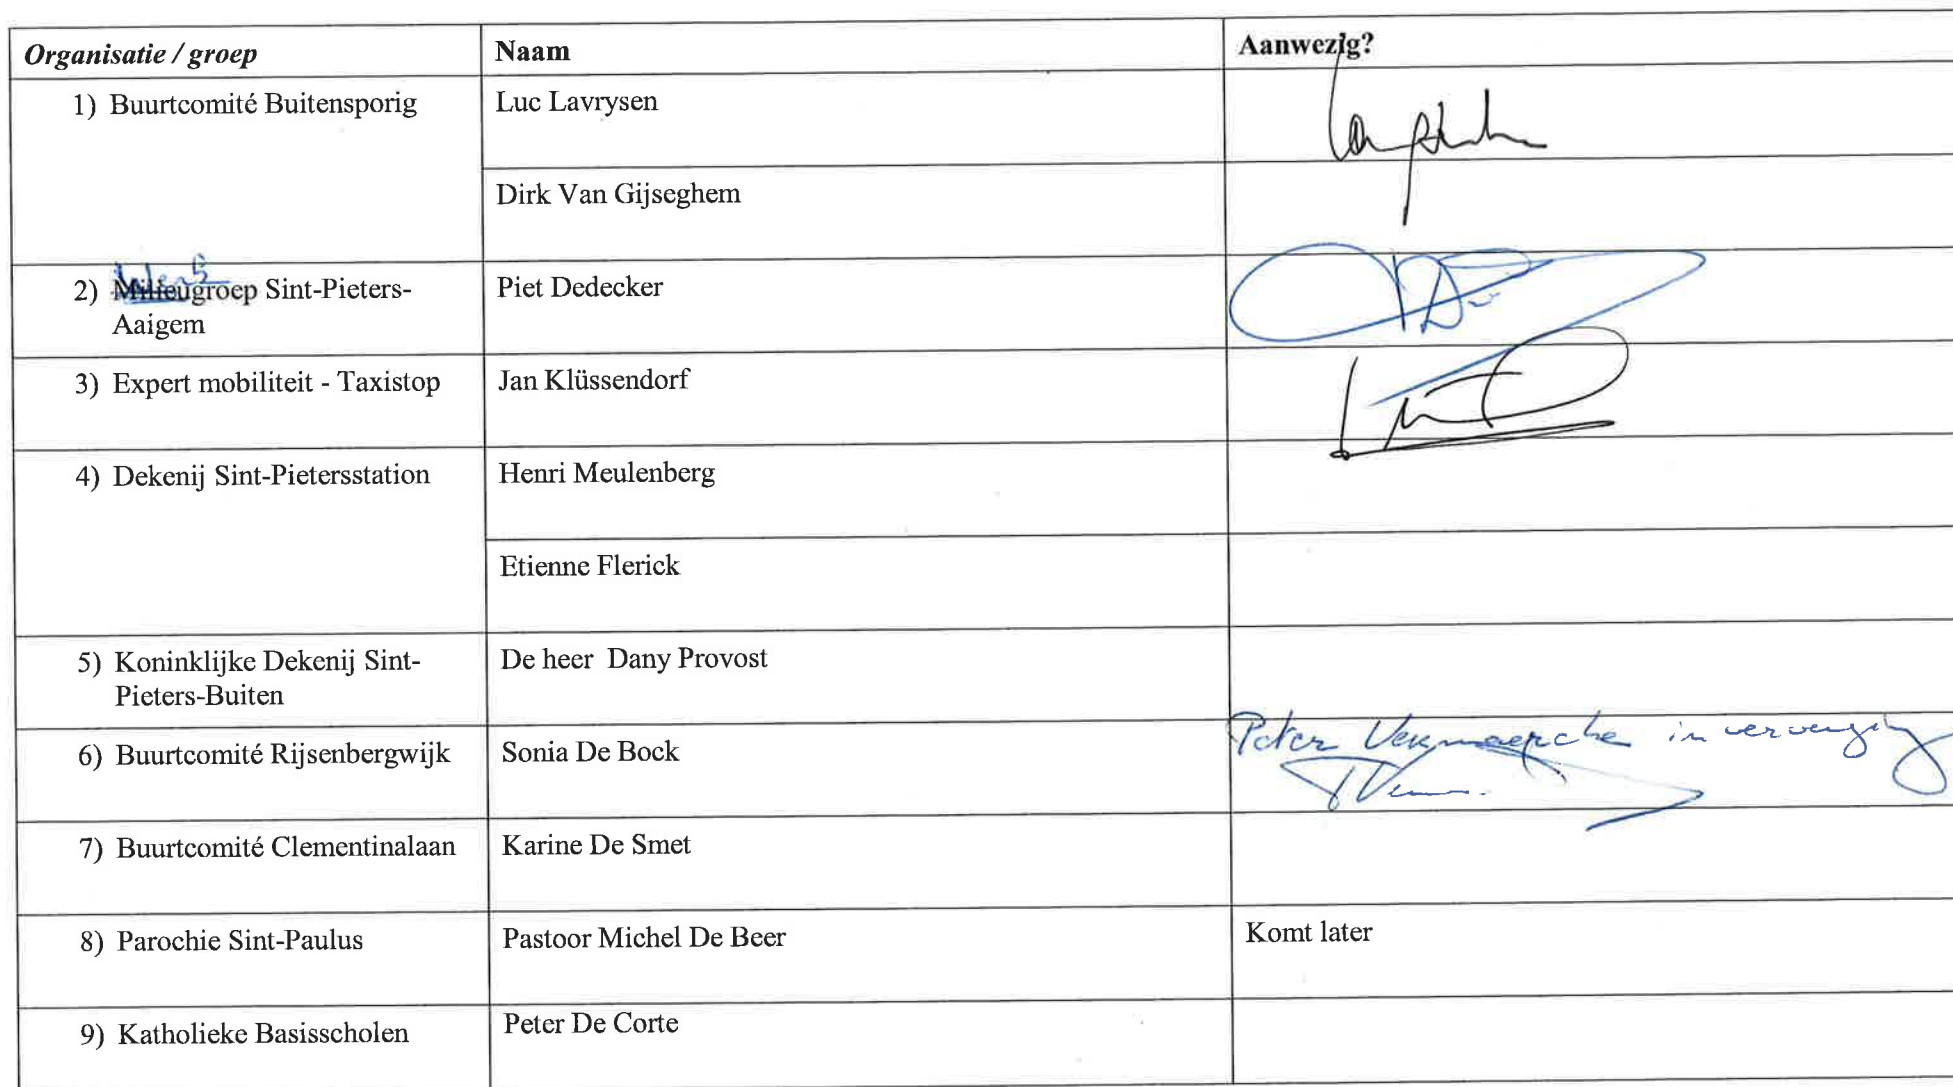 Organisatie / groep Naam Aanwezig?
1) Buurtcomité Buitensporig Luc Lavrysen
Dirk Van Gijseghem
2) Milieugroep Sint-Pieters- Piet Dedecker
Aaigem
3) Expert mobiliteit - Taxistop Jan Klüssendorf
4) Dekenij Sint-Pietersstation Henri Meulenberg
Etienne Flerick
5) Koninklijke Dekenij Sint- De heer Dany Provost
Pieters-Buiten
Peter in
6) Buurtcomité Rijsenbergwijk Sonia De Bock
7) Buurtcomité Clementinalaan Karine De Smet
8) Parochie Sint-Paulus Pastoor Michel De Beer Komt later
9) Katholieke Basisscholen Peter De Corte